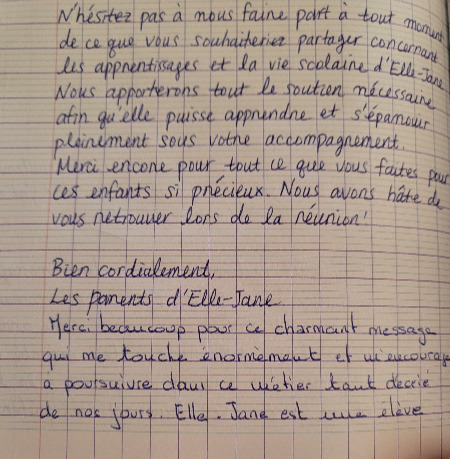 N'hésitez pas à nous faire part à tout moment
de ce que vous souhaiteriez partager concernant
les apprentissages et la vie scolaire d'Elle-Jane
Nous apporterons tout le soutien nécessaire
afin qu'elle puisse apprendre et s'épanouir
pleinement sous votre accompagnement.
Merci encore pour tout ce que vous faites pour
ces enfants si précieux. Nous avons hâte de
vous retrouver lors de la réunion!
Bien cordialement,
Les parents d'Elle-Jane
Merci beaucoup pour ce charmant message
qui me touche énormément et m'encourage
a poursuivre dans ce métier tant décrié
de nos jours. Elle-Jane est une élève